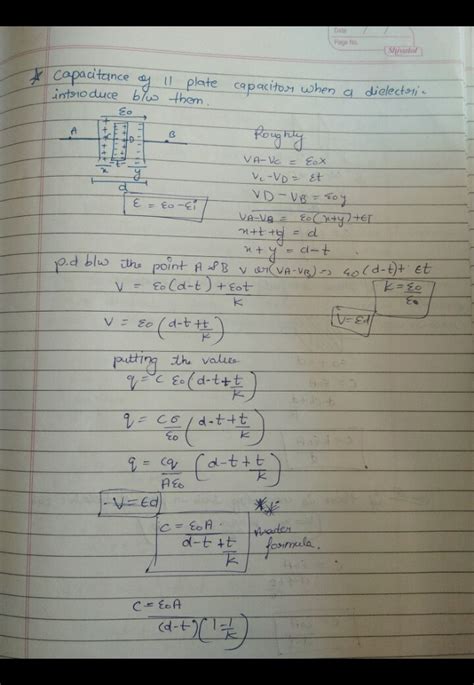 Date / /
Page No.
Shivalal
* Capacitance of 11 plate capacitor when a dielectri-
introduce b/w them.
ε0
A C D B
t
x y
d
ε = ε0 - εi
Roughly
VA-VC = ε0x
VC-VD = εt
VD-VB = ε0y
VA-VB = ε0(x+y)+εt
x+t+y = d
x+y = d-t
p.d b/w the point A & B V or (VA-VB) = ε0(d-t)+εt
V = ε0(d-t) + ε0t/K
K = ε0/ε0
V = ε0(d-t+t/K)
V=εd
putting the value
q = C ε0(d-t+t/K)
q = Cσ/ε0 (d-t+t/K)
q = Cq/Aε0 (d-t+t/K)
-V=εd
C = ε0A/d-t+t/K
** master
formula.
C = ε0A/(d-t)(1-1/K)